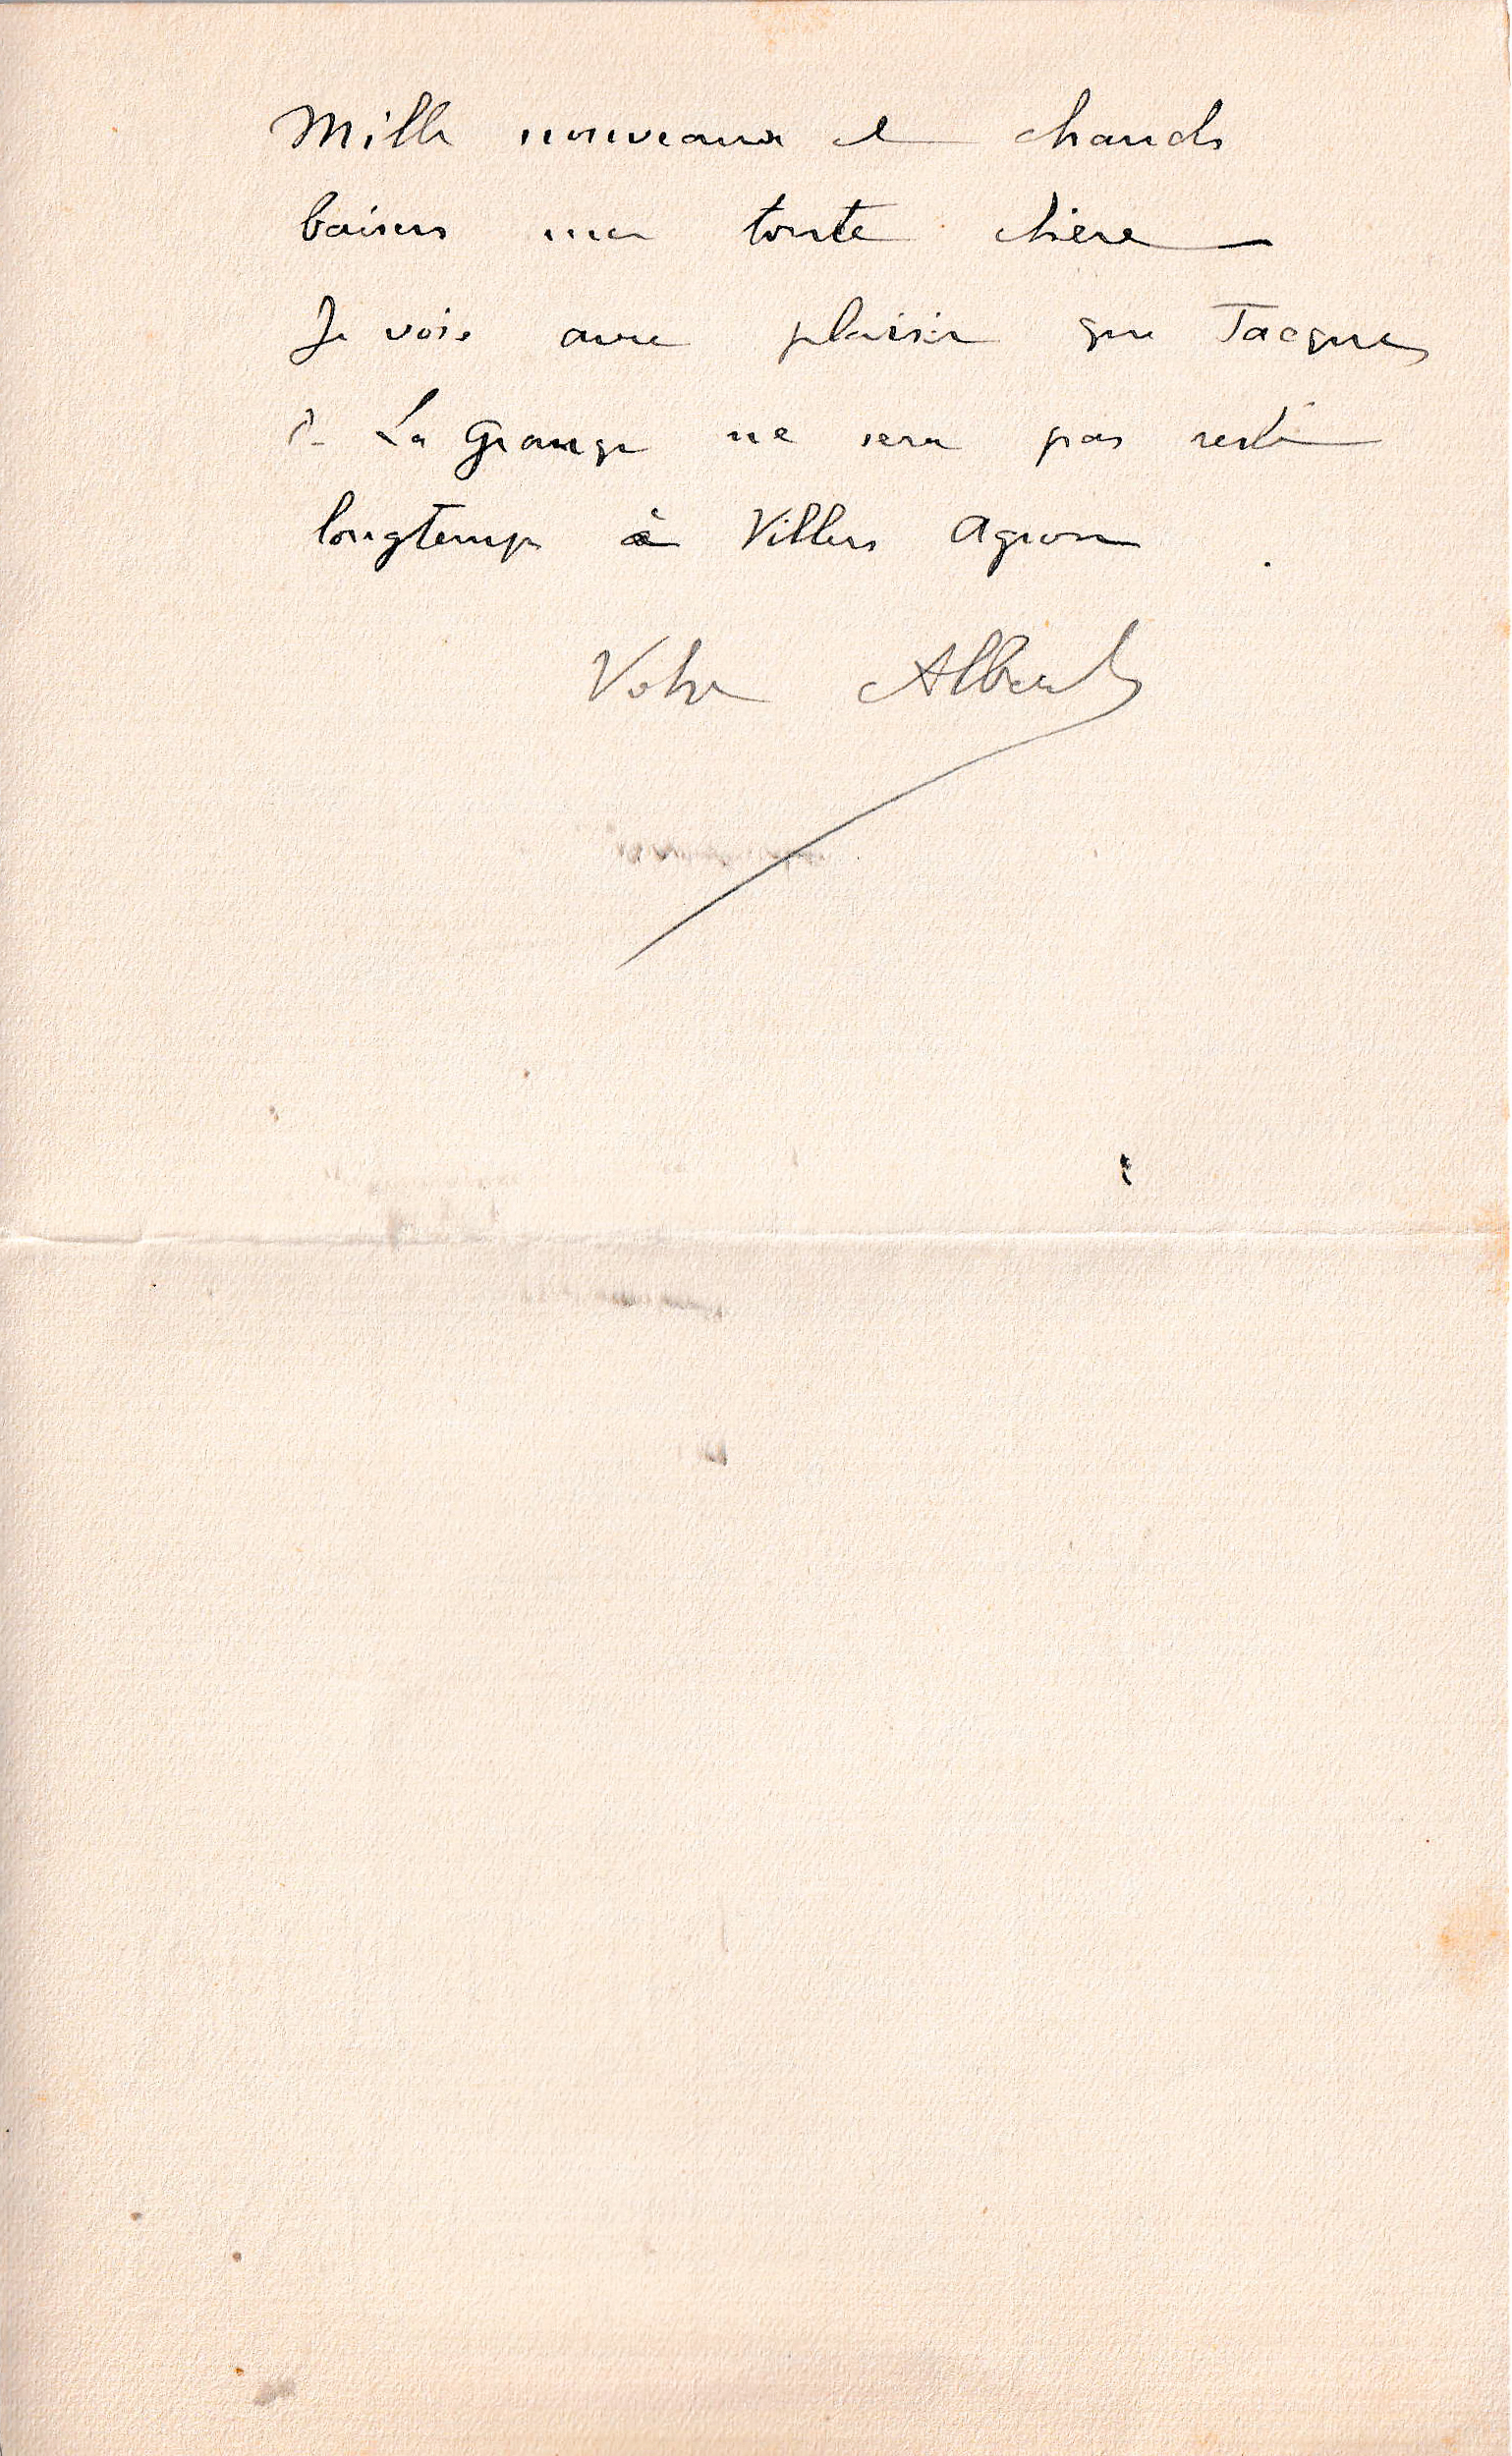 Mille nouveaux et chauds
baisers ma toute chère
Je vois avec plaisir que Jacques
de La Grange ne sera pas resté
longtemps à Villers Agron.
Votre Albert